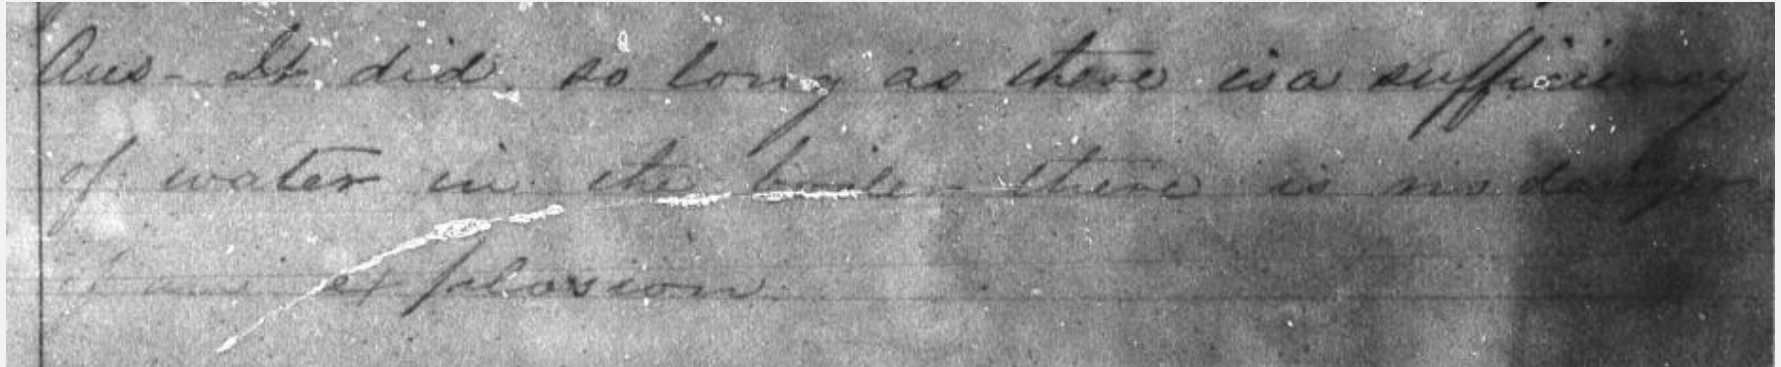 Ans - It did, so long as there is a sufficiency
of water in the boiler there is no danger
of an explosion